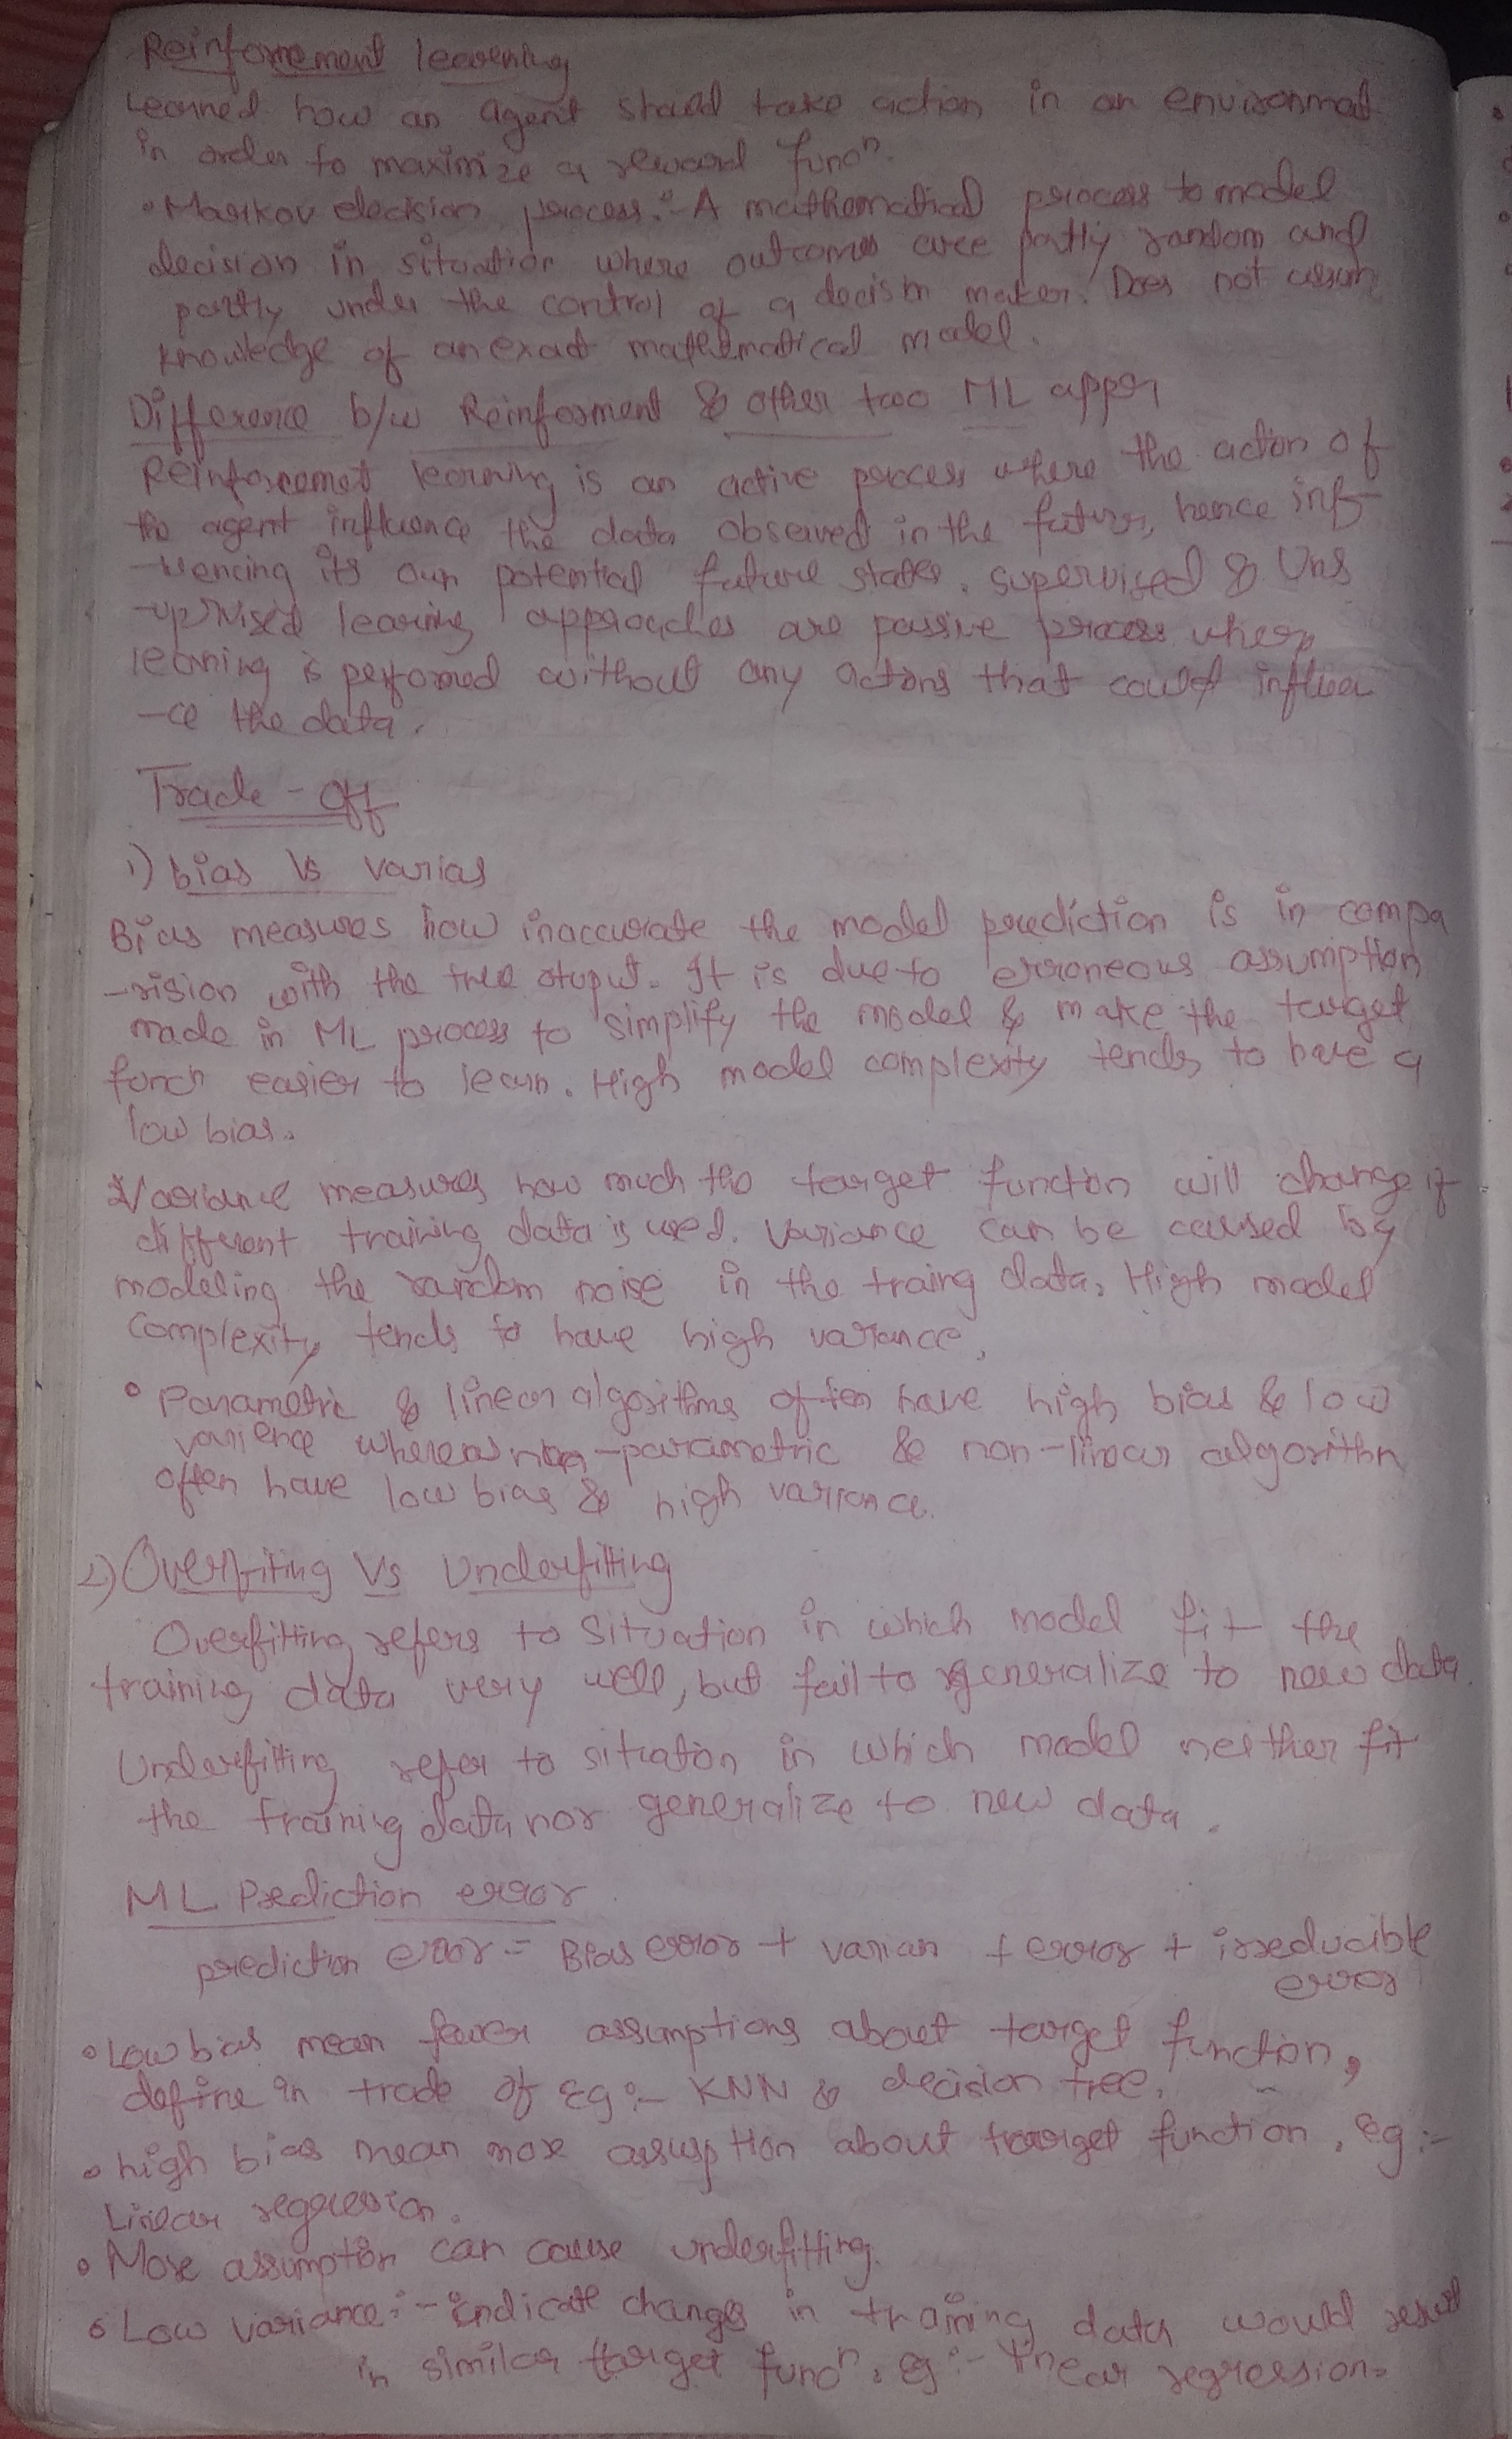 Reinforcement learning
Learned how an agent should take action in an environmat
in order to maximize a reward funcⁿ.
• Markov decision process:- A mathematical process to model
decision in situation where outcomes are partly random and
partly under the control of a decision maker. Does not assum
knowledge of an exact mathematical model.
Difference b/w Reinforsment & other two ML appor
Reinforcemet learning is an active process where the action of
the agent influence the data observed in the future, hence infl-
-uencing its own potential future states. supervised & Uns
-upervised learning approaches are passive process where
learning is performed without any actions that could influen
-ce the data.
Trade - off
1) bias Vs varias
Bias measures how inaccurate the model prediction is in compa
-rision with the true otuput. It is due to erroneous assumption
made in ML process to simplify the model & make the target
funcn easier to learn. High model complexity tends to have a
low bias.
Variance measures how much the target function will change if
different training data is used. Variance can be caused by
modeling the random noise in the traing data, High model
complexity tends to have high variance.
• Parametric & linear algorithms often have high bias & low
varience whereas non-parametric & non-linear algorithm
often have low bias & high variance.
2) Overfiting Vs Underfitting
Overfitting refers to situation in which model fit the
training data very well, but fail to generalize to new data.
Underfitting refer to situation in which model neither fit
the training data nor generalize to new data.
ML Prediction error
prediction error = Bias error + varian + error + irreducible
error
• Low bias mean fewer assumptions about target function,
define in trade of Eg:- KNN & decision tree.
• high bias mean more assusption about target function, Eg:-
Linear regression.
• More assumption can cause underfitting.
• Low variance:- indicate changes in training data would result
in similar target funcⁿ. eg:- linear regression.